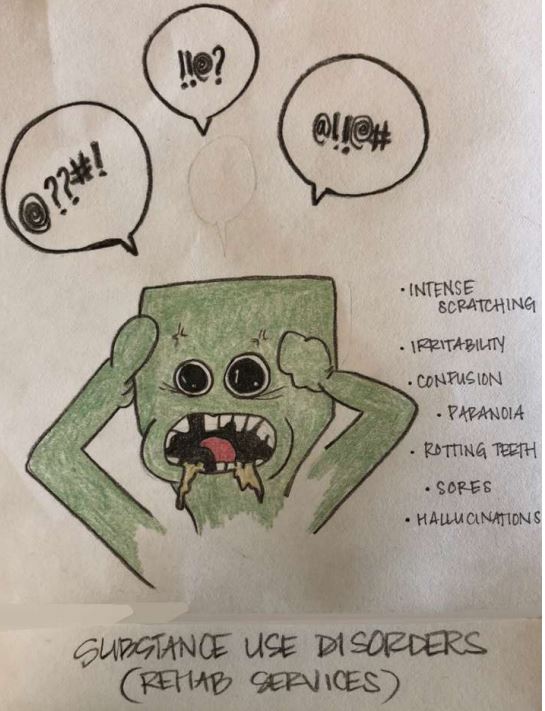 !!@?
@??#!
@!!@#
• INTENSE
SCRATCHING
• IRRITABILITY
• CONFUSION
• PARANOIA
• ROTTING TEETH
• SORES
• HALLUCINATIONS
SUBSTANCE USE DISORDERS
(REHAB SERVICES)